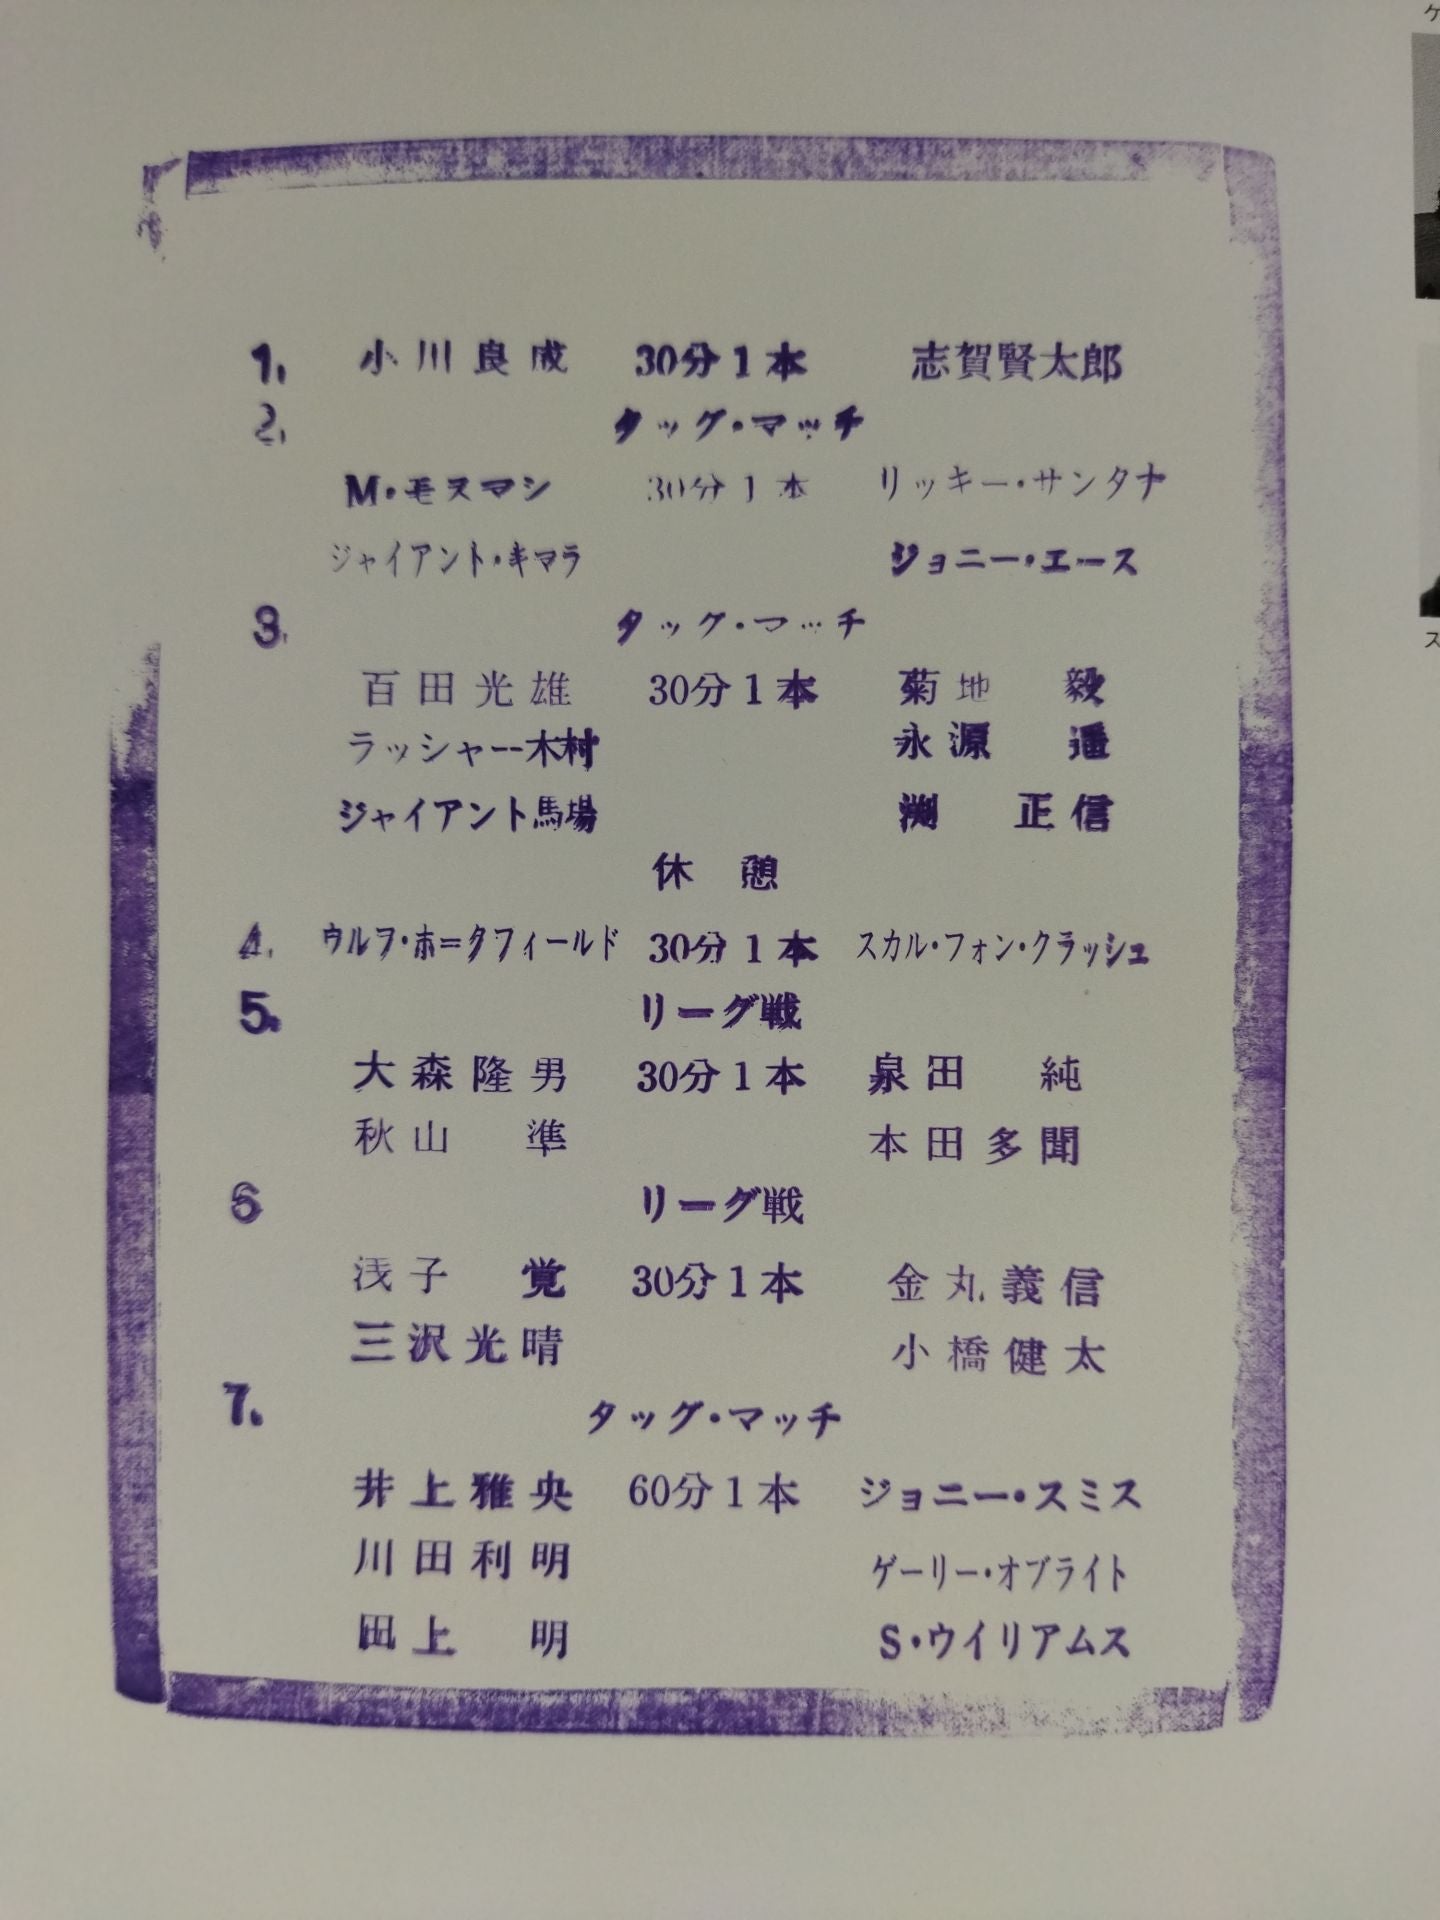 1. 小川良成 30分1本 志賀賢太郎
2. タッグ・マッチ
M・モスマン 30分1本 リッキー・サンタナ
ジャイアント・キマラ ジョニー・エース
3. タッグ・マッチ
百田光雄 30分1本 菊地 毅
ラッシャー木村 永源 遥
ジャイアント馬場 渕 正信
休憩
4. ウルフ・ホークフィールド 30分1本 スカル・フォン・クラッシュ
5. リーグ戦
大森隆男 30分1本 泉田 純
秋山 準 本田多聞
6 リーグ戦
浅子 覚 30分1本 金丸義信
三沢光晴 小橋健太
7. タッグ・マッチ
井上雅央 60分1本 ジョニー・スミス
川田利明 ゲーリー・オブライト
田上 明 S・ウイリアムス
ケ
ス